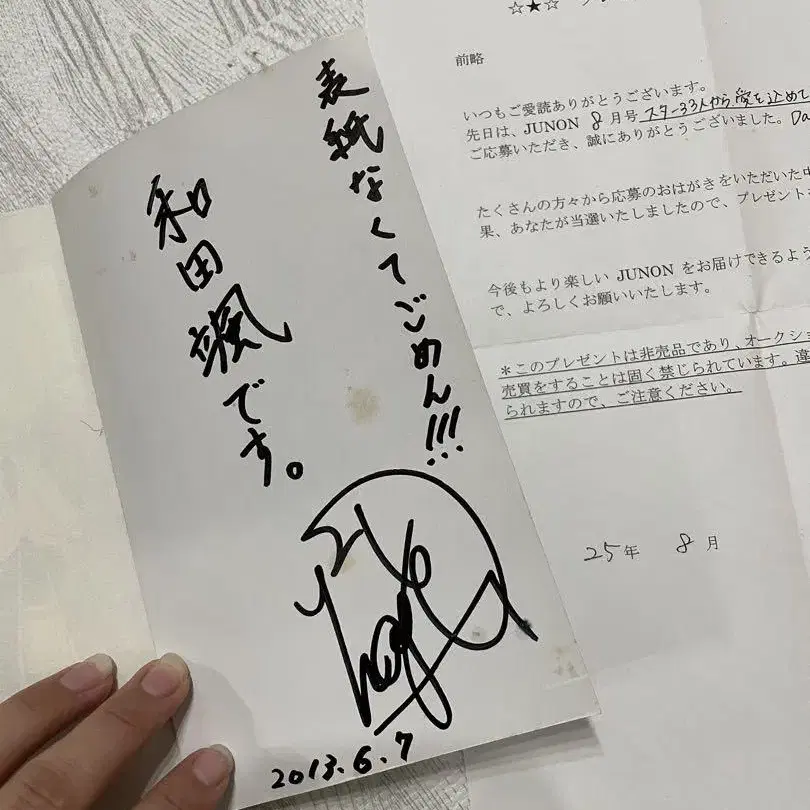 表紙なくてごめん!!!
和田颯です。
2013.6.7
☆★☆
前略
いつもご愛読ありがとうございます。
先日は、JUNON 8月号 スター33人から愛を込めて
ご応募いただき、誠にありがとうございました。Da
たくさんの方々から応募のおはがきをいただいた中
果、あなたが当選いたしましたので、プレゼント
今後もより楽しい JUNON をお届けできるよう
で、よろしくお願いいたします。
＊このプレゼントは非売品であり、オークショ
売買をすることは固く禁じられています。違
られますので、ご注意ください。
25年 8月